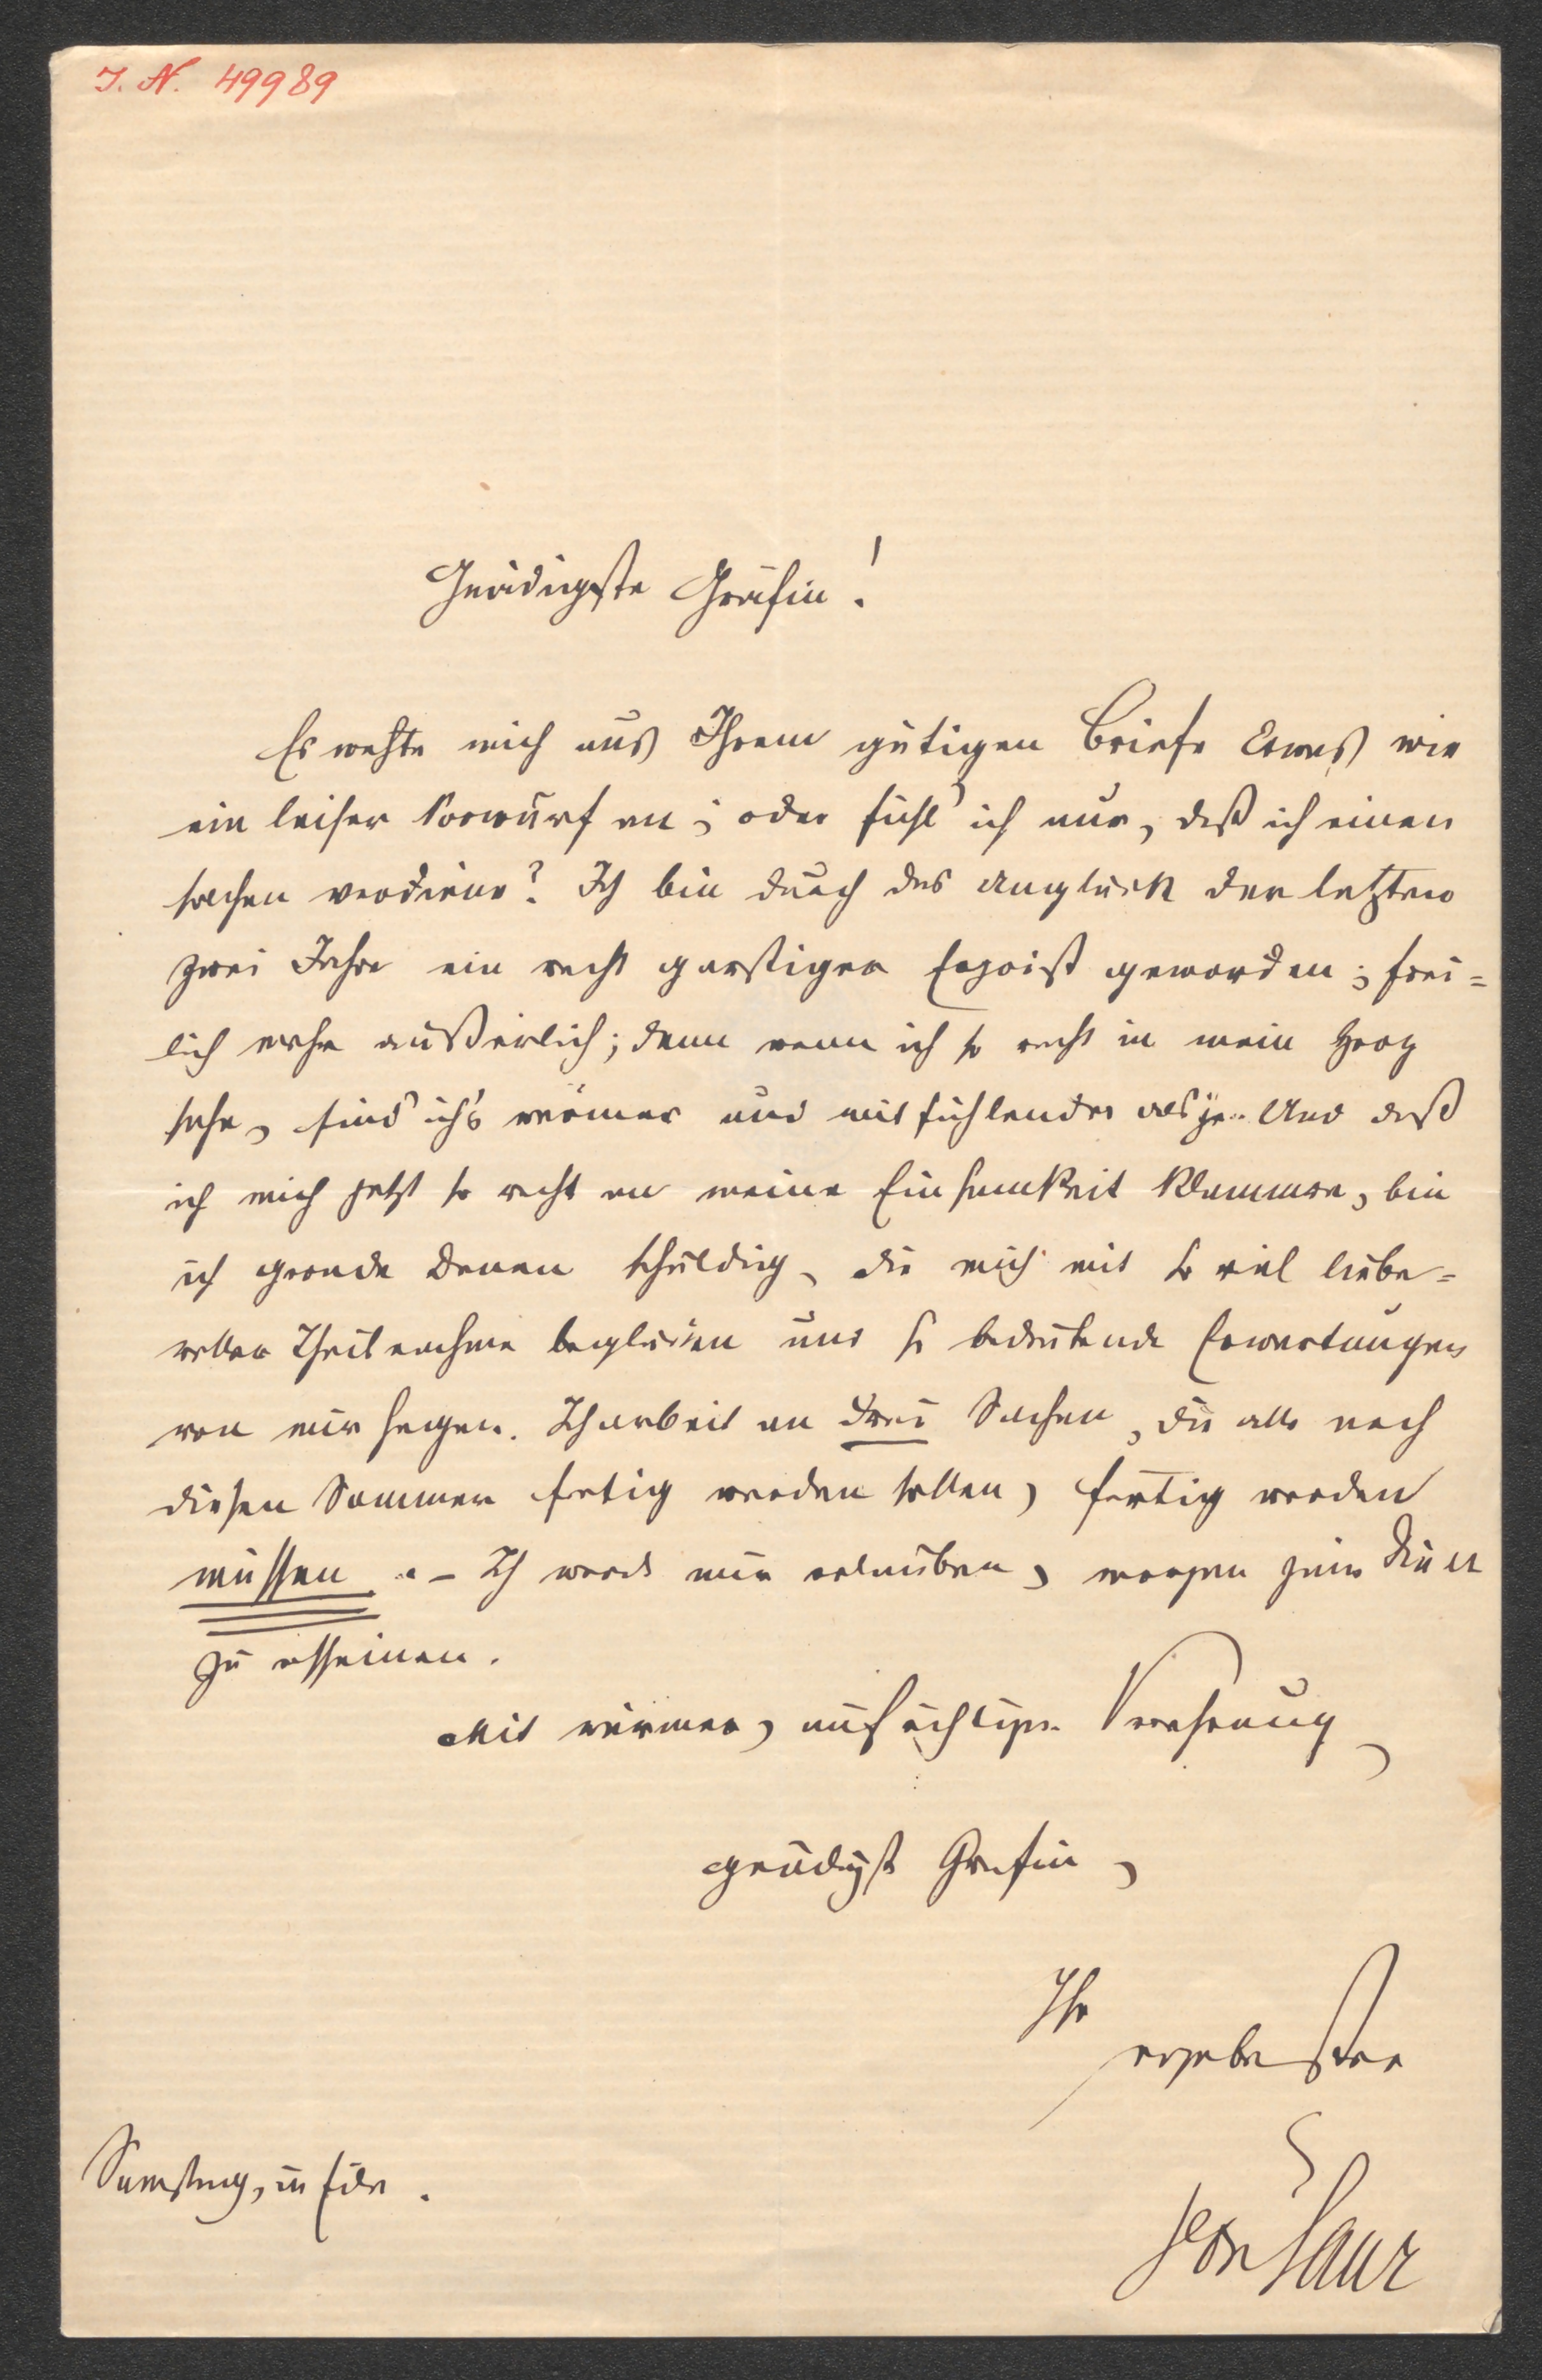 I. N. 49989
Gnädigste Gräfin!
Es wehte mich aus Ihrem gütigen Briefe Etwas wie
ein leiser Vorwurf an; oder fühl' ich nur, daß ich einen
solchen verdiene? Ich bin durch das Unglück der letzten
zwei Jahre ein recht garstiger Egoist geworden; frei=
lich mehr äußerlich; denn wenn ich so recht in mein Herz
sehe, find' ich's wärmer und mitfühlender als je. Und daß
ich mich jetzt so recht an meine Einsamkeit klammere, bin
ich gerade Denen schuldig, die mich mit so viel liebe=
voller Theilnahme beglücken und so bedeutende Erwartungen
von mir hegen. Ich arbeit an drei Sachen, die alle noch
diesen Sommer fertig werden sollen, fertig werden
müssen. – Ich werde mir erlauben, morgen zum Diner
zu erscheinen.
Mit warmer, aufrichtiger Verehrung,
gnädigste Gräfin,
Ihr
ergebenster
Samstag, in Eile.